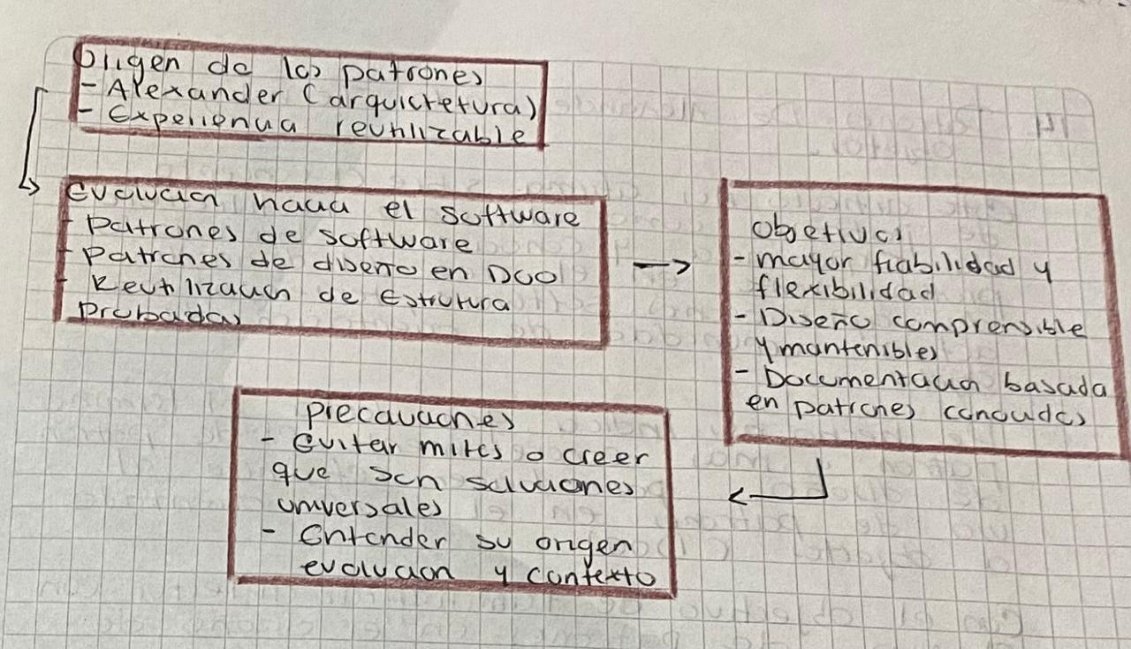 Origen de los patrones
- Alexander (arquictetura)
- Experiencia reutilizable
Evolucion hacia el software
- Patrones de software
- Patrones de diseño en DOO
- Reutilizacion de Estrutura
Probadas
Objetivos
- mayor fiabilidad y
flexibilidad
- Diseño comprensible
y mantenibles
- Documentacion basada
en patrones conocidos
Precauciones
- Evitar mitos o creer
que son soluciones
universales
- Entender su origen
evolucion y contexto